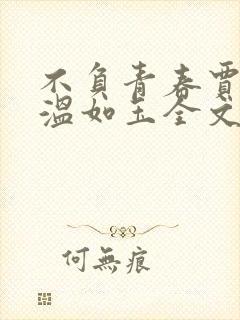 不負青春賈
溫如玉全文
何無痕